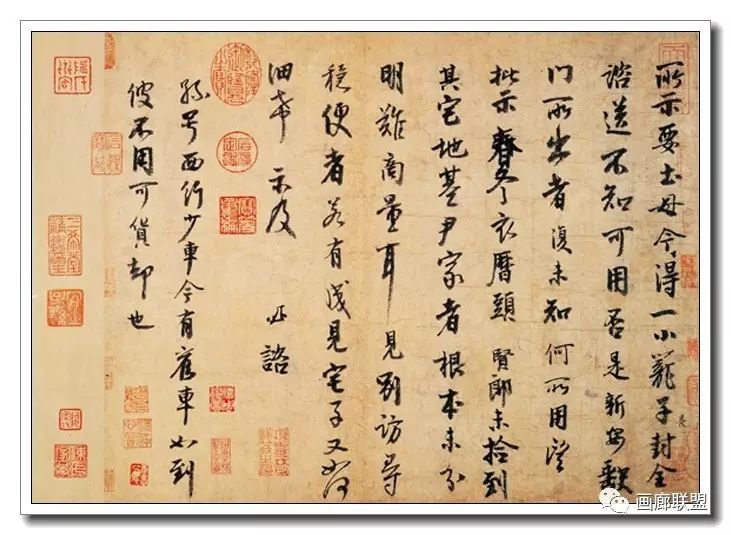 所示要土母今得一小籠子封全
諮送不知可用否是新安缺
门所出者復未知何所用望
批示春冬衣曆頭賢郎未撿到
其宅地基尹家者根本未分
明難商量耳見别訪尋
穩便者若有淺見宅子又如何
細希示及 諮
孫号西行少車今有舊車如到
彼不用可貨却也
長
画廊联盟